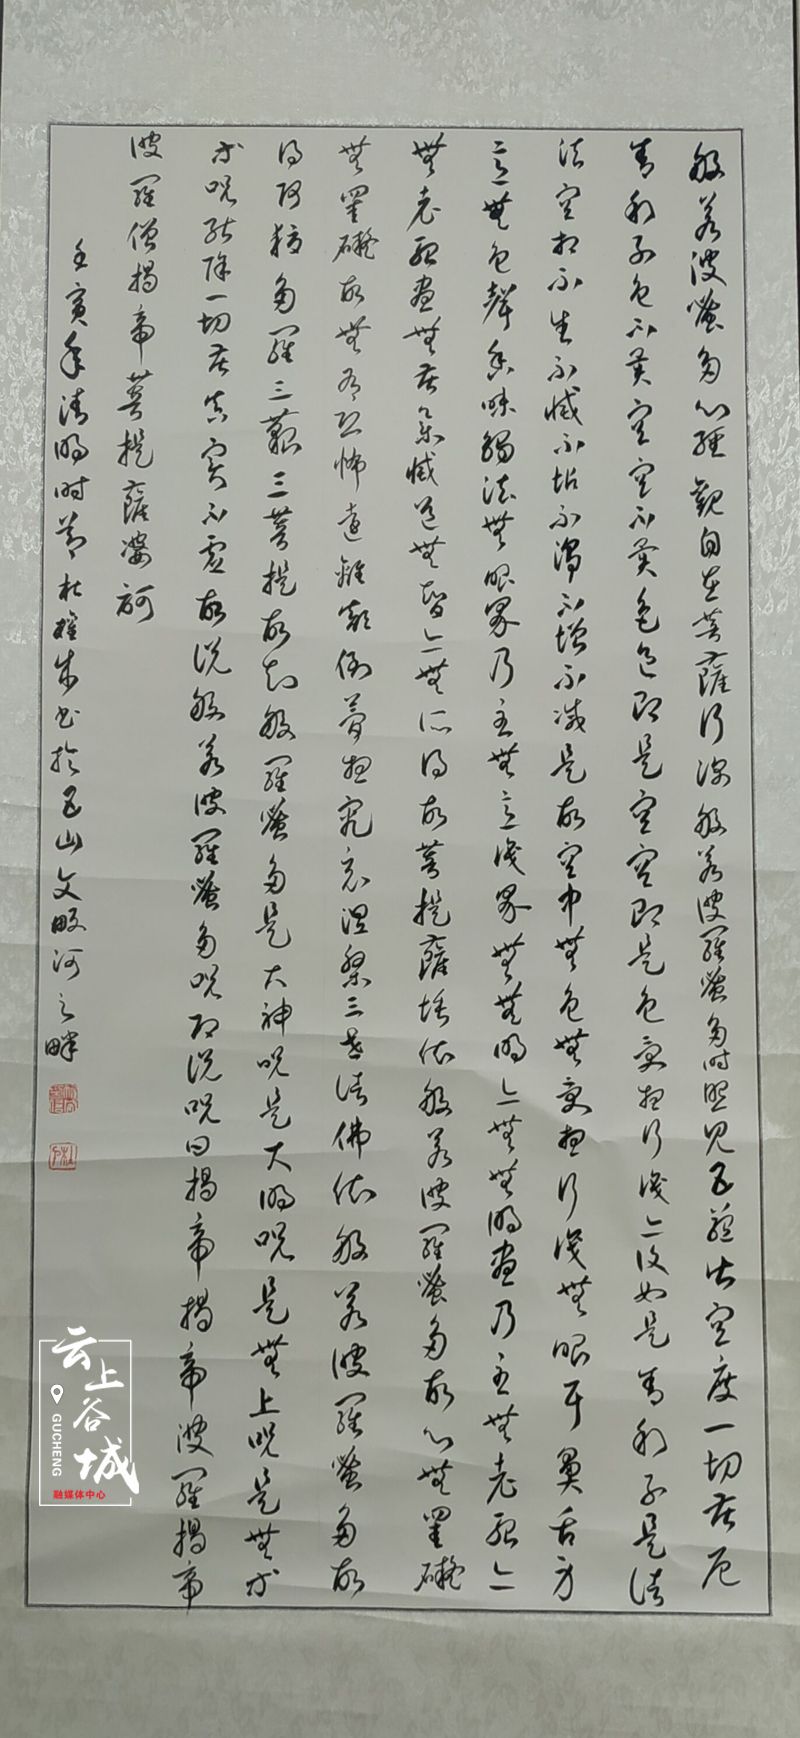 般若波蜜多心經觀自在菩薩行深般若波羅蜜多時照見五蘊皆空度一切苦厄
舍利子色不異空空不異色色即是空空即是色受想行識亦復如是舍利子是諸
法空相不生不滅不垢不淨不增不減是故空中無色無受想行識無眼耳鼻舌身
意無色聲香味觸法無眼界乃至無意識界無無明亦無無明盡乃至無老死亦
無老死盡無苦集滅道無智亦無所得故菩提薩埵依般若波羅蜜多故心無罣礙
無罣礙故無有恐怖遠離顛倒夢想究竟涅槃三世諸佛依般若波羅蜜多故
得阿耨多羅三藐三菩提故知般羅蜜多是大神咒是大明咒是無上咒是無等
等咒能除一切苦真實不虛故說般若波羅蜜多咒即說咒曰揭帝揭帝波羅揭帝
波羅僧揭帝菩提薩婆訶
壬寅年清明時節杜 成書於 山文畈河之畔
云上谷城
GUCHENG
融媒体中心